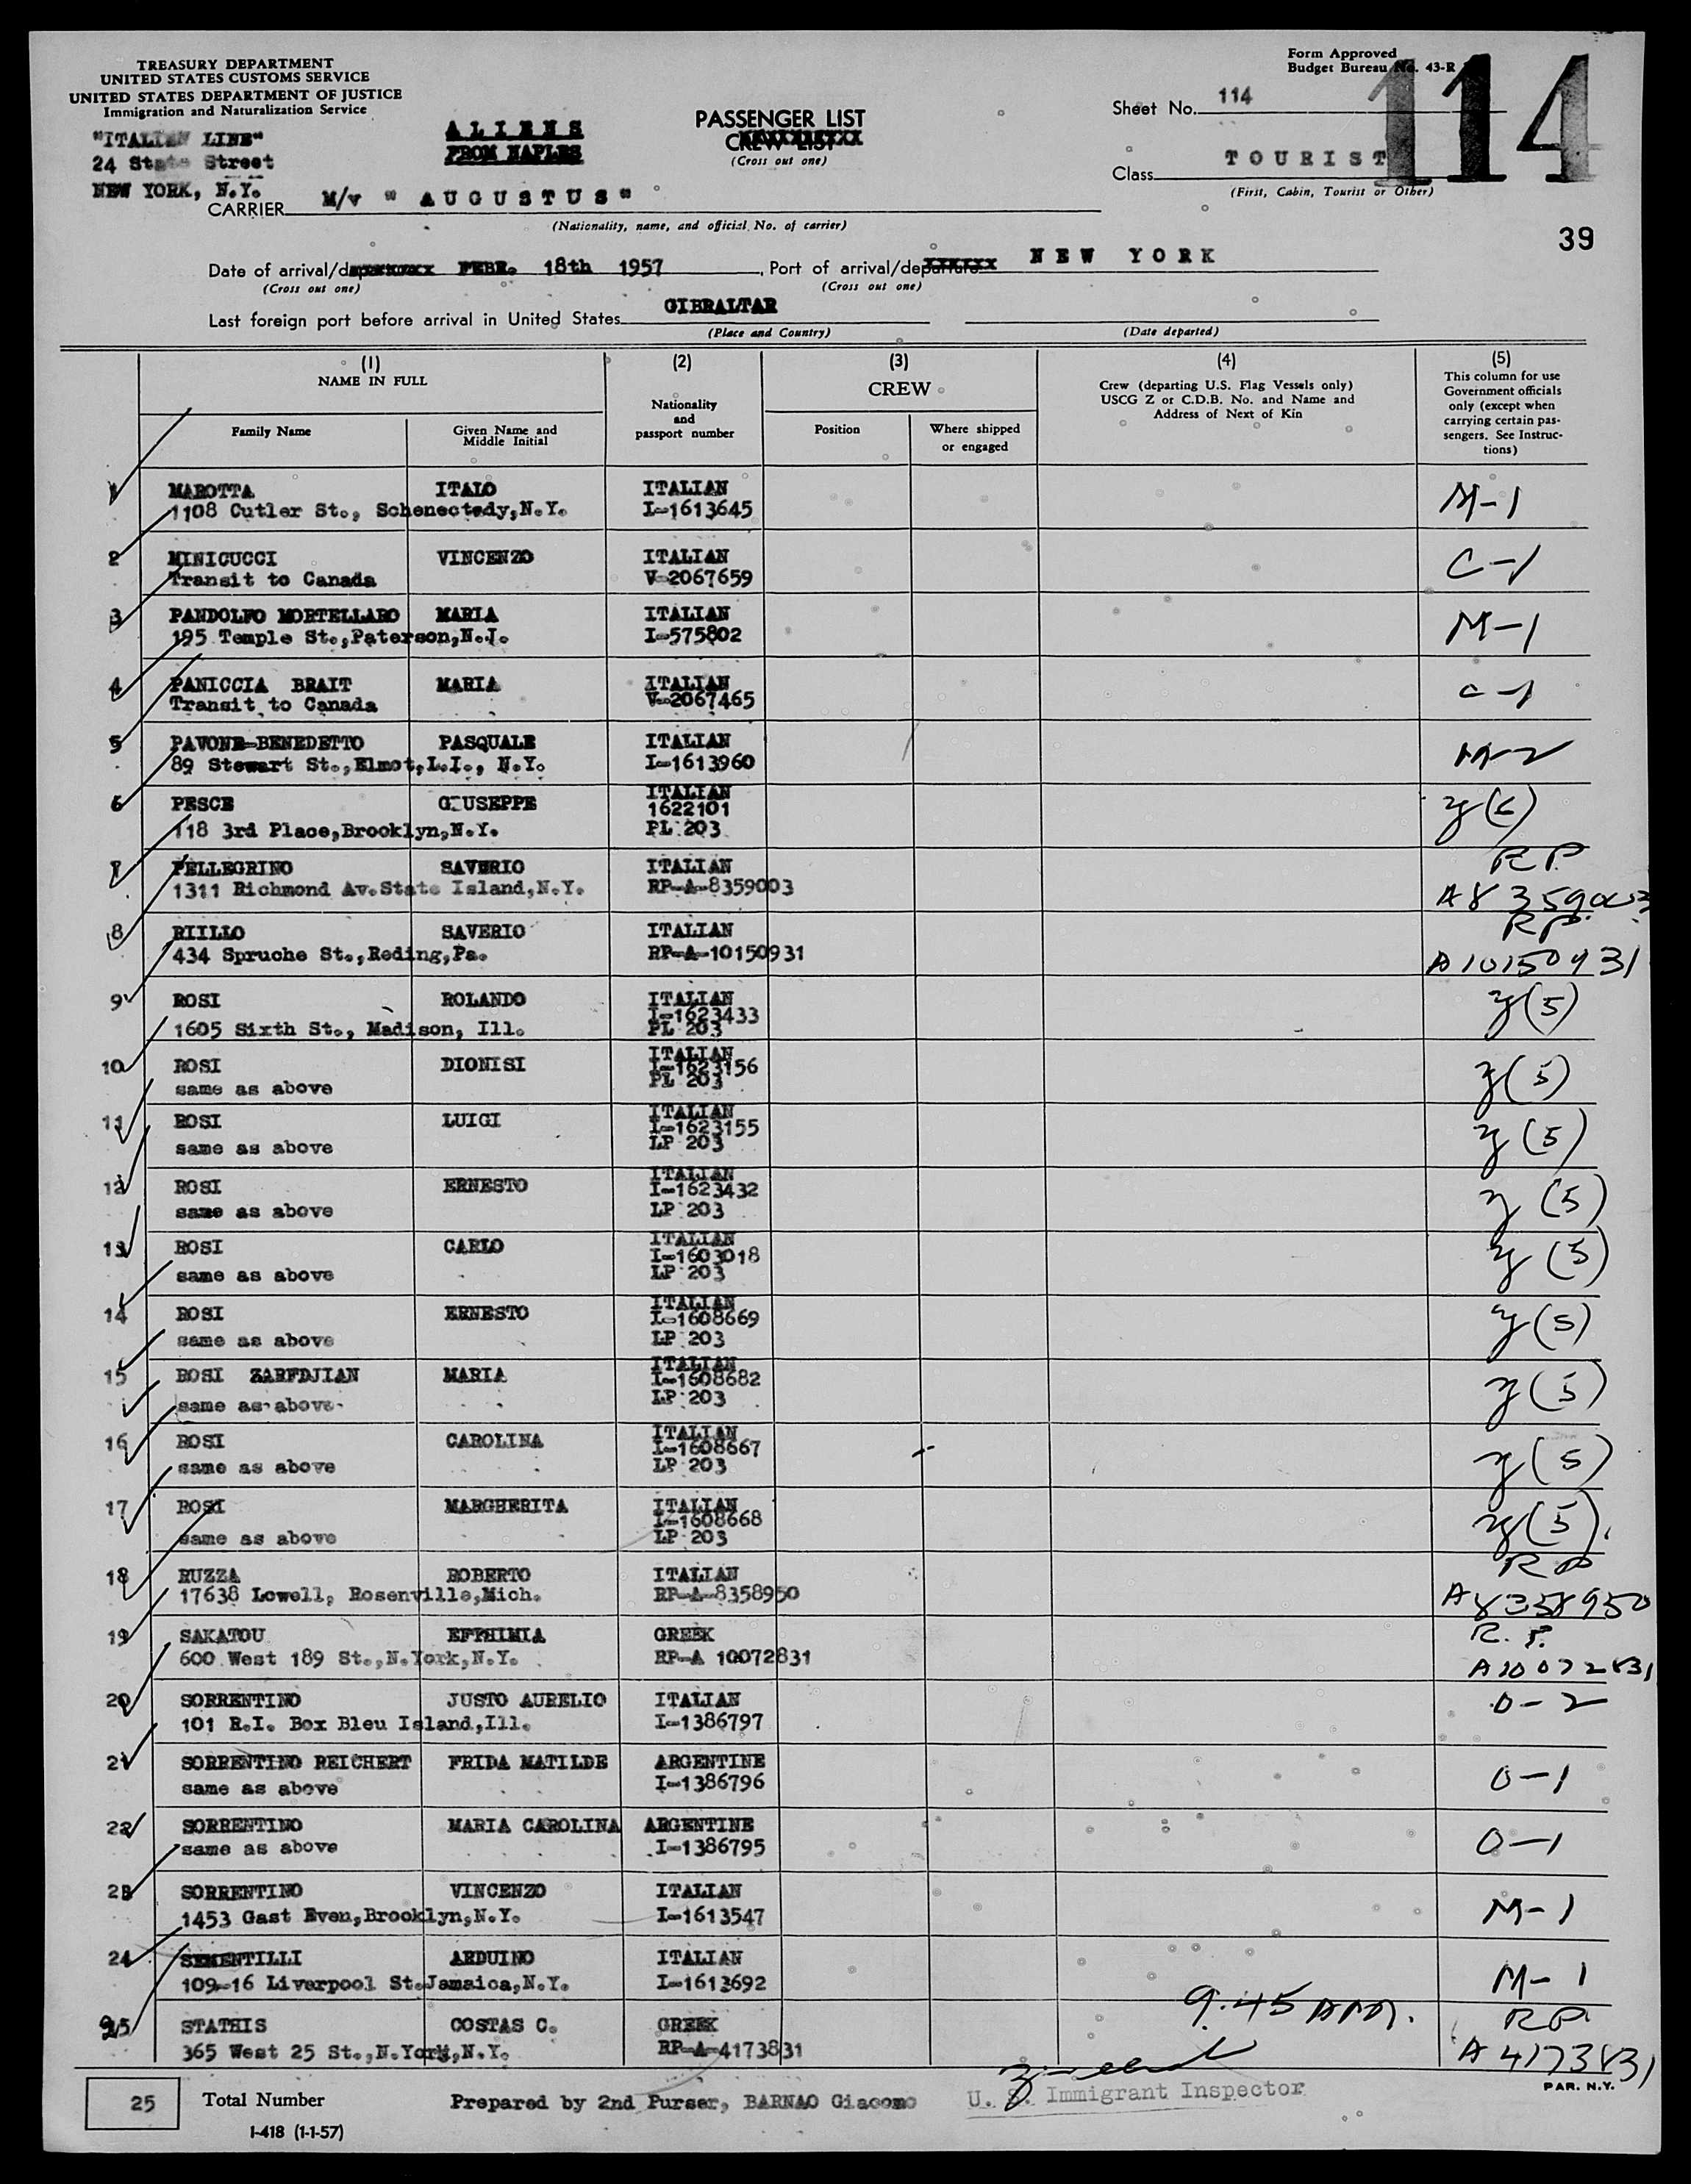 Form Approved
Budget Bureau No. 43-R
TREASURY DEPARTMENT
UNITED STATES CUSTOMS SERVICE
UNITED STATES DEPARTMENT OF JUSTICE
Immigration and Naturalization Service
"ITALIAN LINE"
24 State Street
NEW YORK, N.Y.
ALIENS
FROM NAPLES
PASSENGER LIST
CREW LIST
(Cross out one)
Sheet No. 114
114
Class TOURIST
(First, Cabin, Tourist or Other)
CARRIER M/v " AUGUSTUS "
(Nationality, name, and official No. of carrier)
39
Date of arrival/departure FEBR. 18th 1957, Port of arrival/departure NEW YORK
(Cross out one) (Cross out one)
Last foreign port before arrival in United States GIBRALTAR
(Place and Country) (Date departed)
(1) (2) (3) (4) (5)
NAME IN FULL
Family Name
Given Name and Middle Initial
Nationality and passport number
CREW
Position
Where shipped or engaged
Crew (departing U.S. Flag Vessels only)
USCG Z or C.D.B. No. and Name and
Address of Next of Kin
This column for use
Government officials
only (except when
carrying certain pas-
sengers. See Instruc-
tions)
1 MAROTTA ITALO ITALIAN M-1
1108 Cutler St., Schenectady,N.Y. I-1613645
2 MINICUCCI VINCENZO ITALIAN C-1
Transit to Canada V-2067659
3 PANDOLFO MORTELLARO MARIA ITALIAN M-1
195 Temple St.,Paterson,N.J. I-575802
4 PANICCIA BRAIT MARIA ITALIAN C-1
Transit to Canada V-2067465
5 PAVONE-BENEDETTO PASQUALE ITALIAN M-2
89 Stewart St.,Elmot,L.I., N.Y. I-1613960
6 PESCE GIUSEPPE ITALIAN
1622101
118 3rd Place,Brooklyn,N.Y. PL 203
7 PELLEGRINO SAVERIO ITALIAN RP
1311 Richmond Av.State Island,N.Y. RP-A-8359003 A8359003
8 RIILLO SAVERIO ITALIAN RP
434 Spruche St.,Reding,Pa. RP-A-10150931 A10150931
9 ROSI ROLANDO ITALIAN (5)
I-1623433
1605 Sixth St., Madison, Ill. PL 203
10 ROSI DIONISI ITALIAN (5)
I-1623156
same as above PL 203
11 ROSI LUIGI ITALIAN (5)
I-1623155
same as above LP 203
12 ROSI ERNESTO ITALIAN (5)
I-1623432
same as above LP 203
13 ROSI CARLO ITALIAN (5)
I-1603018
same as above LP 203
14 ROSI ERNESTO ITALIAN (5)
I-1608669
same as above LP 203
15 ROSI ZARFDJIAN MARIA ITALIAN (5)
I-1608682
same as above LP 203
16 ROSI CAROLINA ITALIAN (5)
I-1608667
same as above LP 203
17 ROSI MARGHERITA ITALIAN (5)
I-1608668
same as above LP 203
18 RUZZA ROBERTO ITALIAN RP
17638 Lowell, Rosenville,Mich. RP-A-8358950 A8358950
19 SAKATOU EFPHIMIA GREEK R.P.
600 West 189 St.,N.York,N.Y. RP-A 10072831 A10072831
20 SORRENTINO JUSTO AURELIO ITALIAN O-2
101 R.I. Box Bleu Island,Ill. I-1386797
21 SORRENTINO REICHERT FRIDA MATILDE ARGENTINE O-1
same as above I-1386796
22 SORRENTINO MARIA CAROLINA ARGENTINE O-1
same as above I-1386795
23 SORRENTINO VINCENZO ITALIAN M-1
1453 Gast Even,Brooklyn,N.Y. I-1613547
24 SEMENTILLI ARDUINO ITALIAN M-1
109-16 Liverpool St.Jamaica,N.Y. I-1613692
9:45 AM.
25 STATHIS COSTAS C. GREEK RP
365 West 25 St.,N.York,N.Y. RP-A-4173831 A4173831
25 Total Number
Prepared by 2nd Purser, BARNAO Giacomo
U. S. Immigrant Inspector
PAR. N.Y.
I-418 (1-1-57)